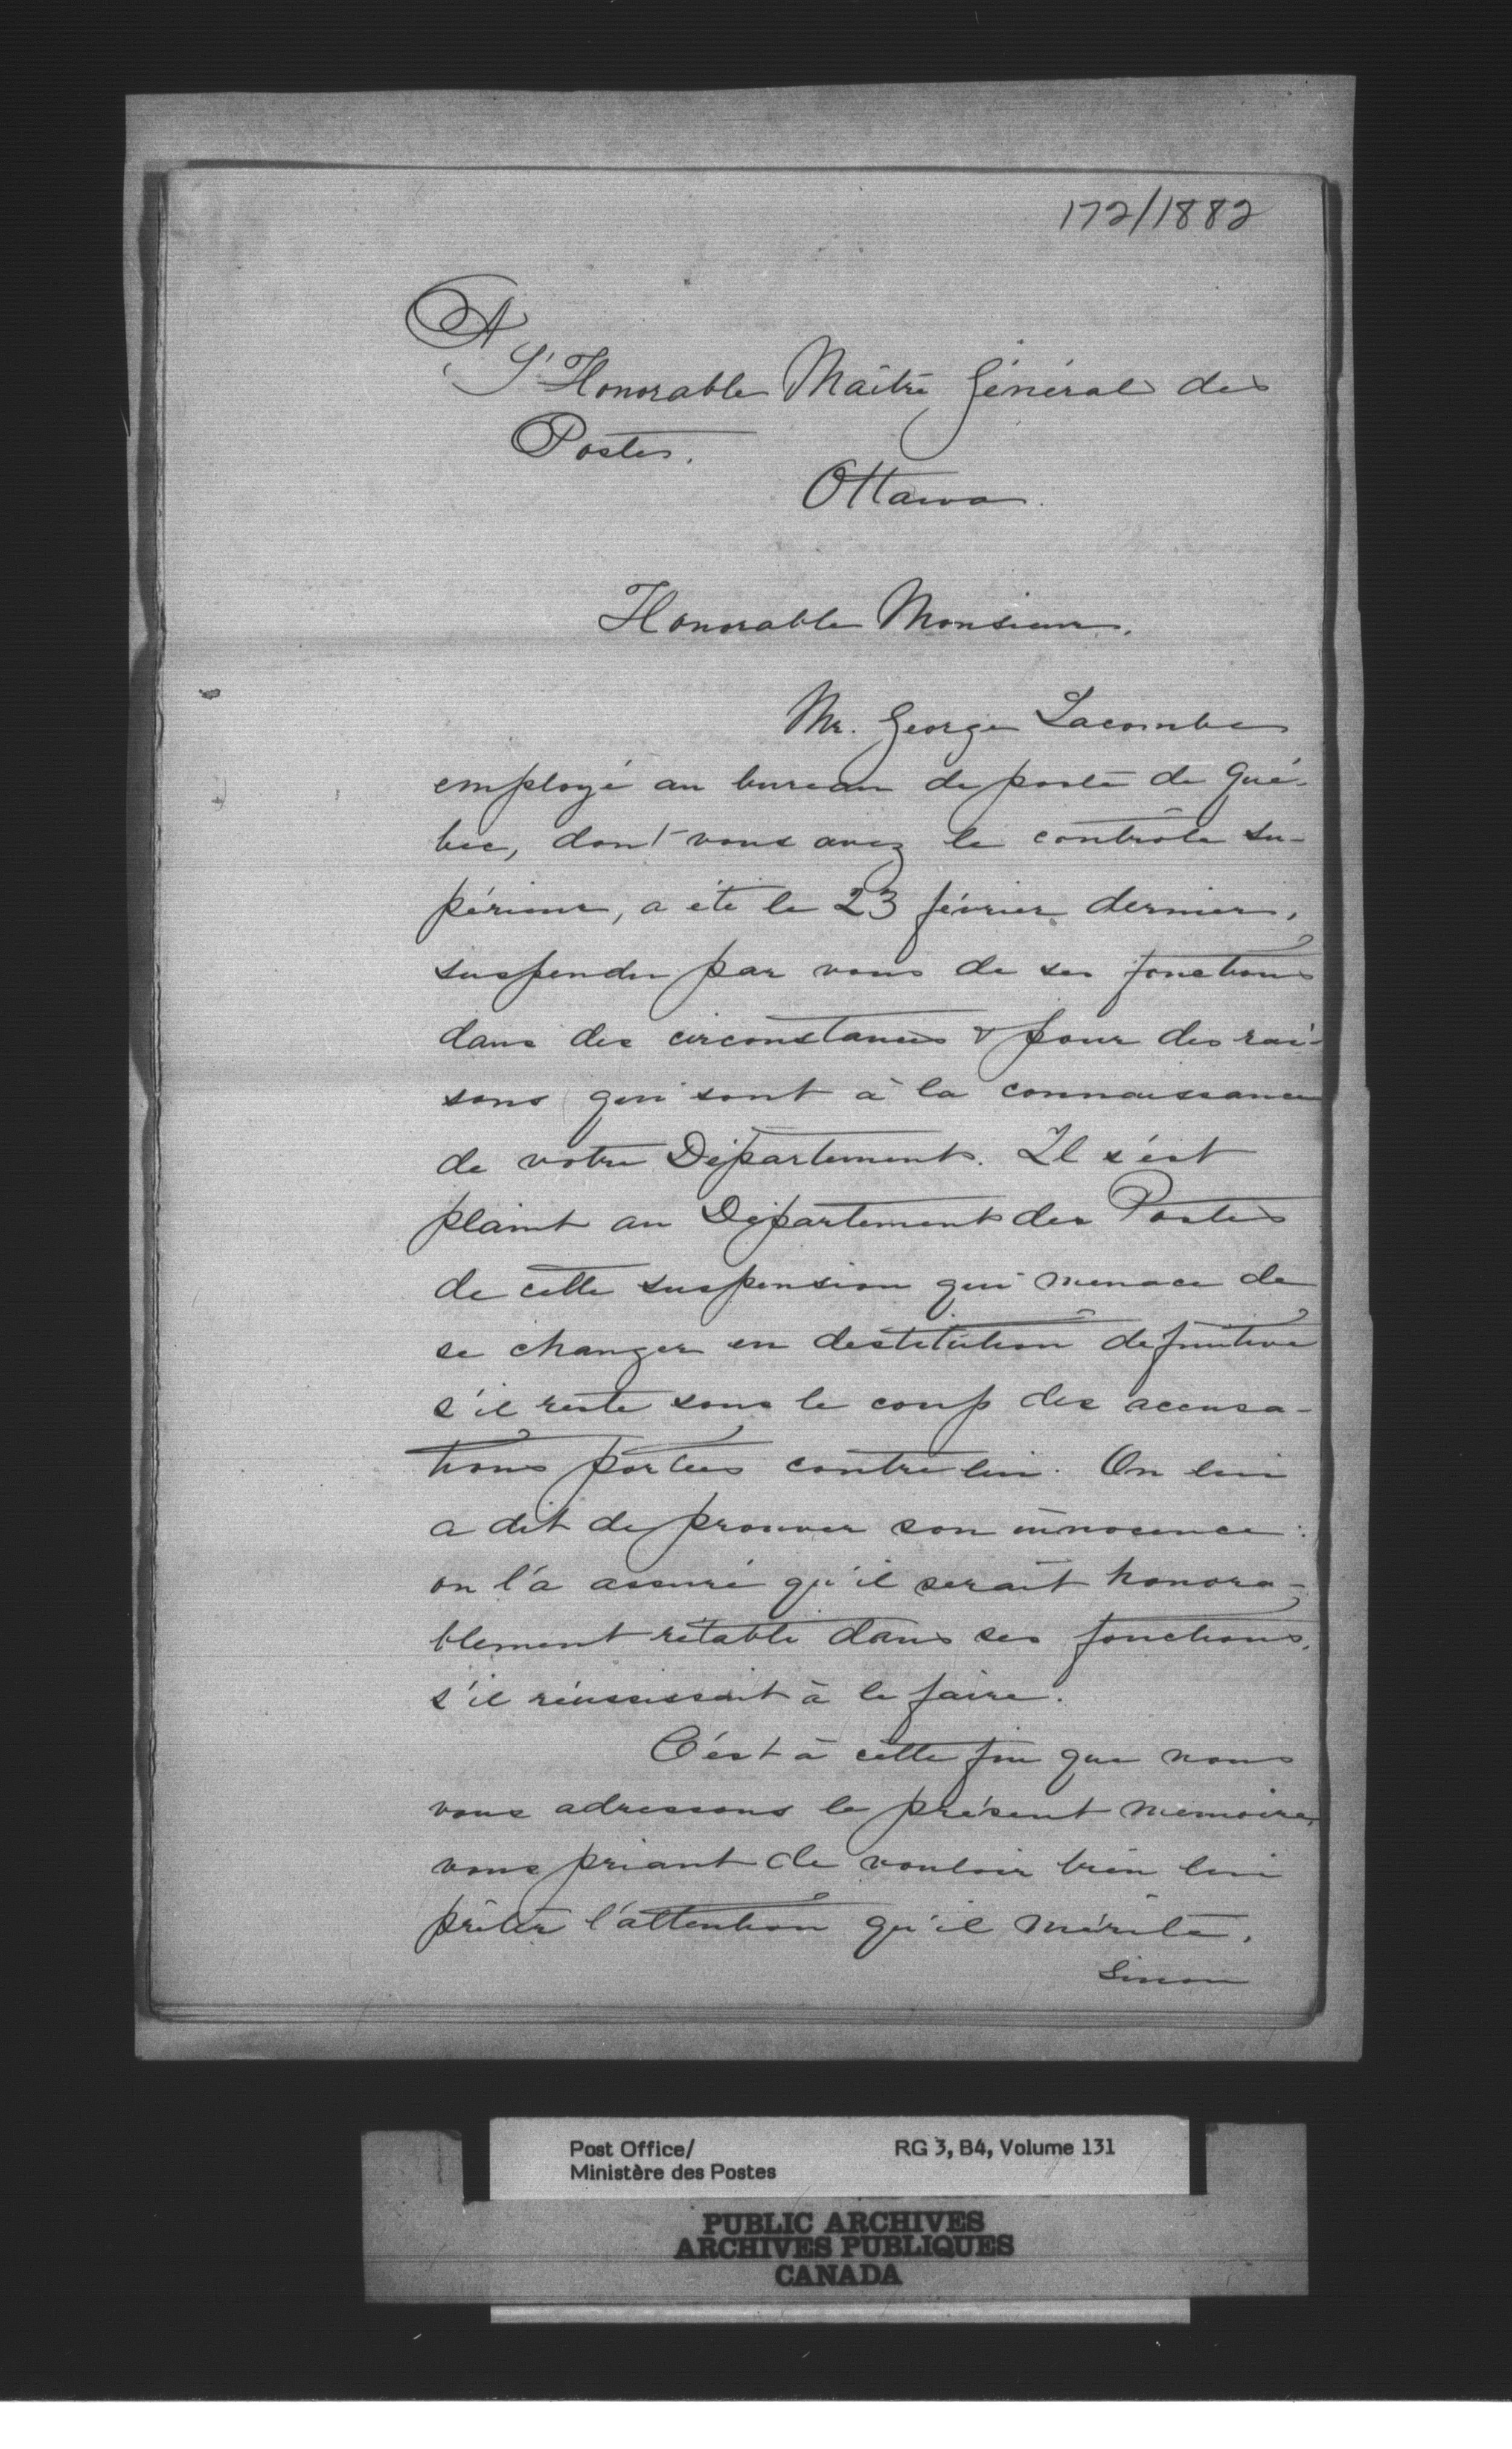 172/1882
A
L'Honorable Maître Général des
Postes.
Ottawa.
Honorable Monsieur,
Mr. George Lacombe
employé au bureau de poste de Qué-
bec, dont vous avez le contrôle su-
périeur, a été le 23 février dernier,
suspendu par vous de ses fonctions
dans des circonstances & pour des rai-
sons qui sont à la connaissance
de votre Département. Il s'est
plaint au Département des Postes
de cette suspension qui menace de
se changer en destitution définitive
s'il reste sous le coup des accusa-
tions portées contre lui. On lui
a dit de prouver son innocence :
on l'a assuré qu'il serait honora-
blement rétabli dans ses fonctions,
s'il réussissait à le faire.
C'est à cette fin que nous
vous adressons le présent mémoire,
vous priant de vouloir bien lui
prêter l'attention qu'il mérite.
Sinon
Post Office/
Ministère des Postes
RG 3, B4, Volume 131
PUBLIC ARCHIVES
ARCHIVES PUBLIQUES
CANADA